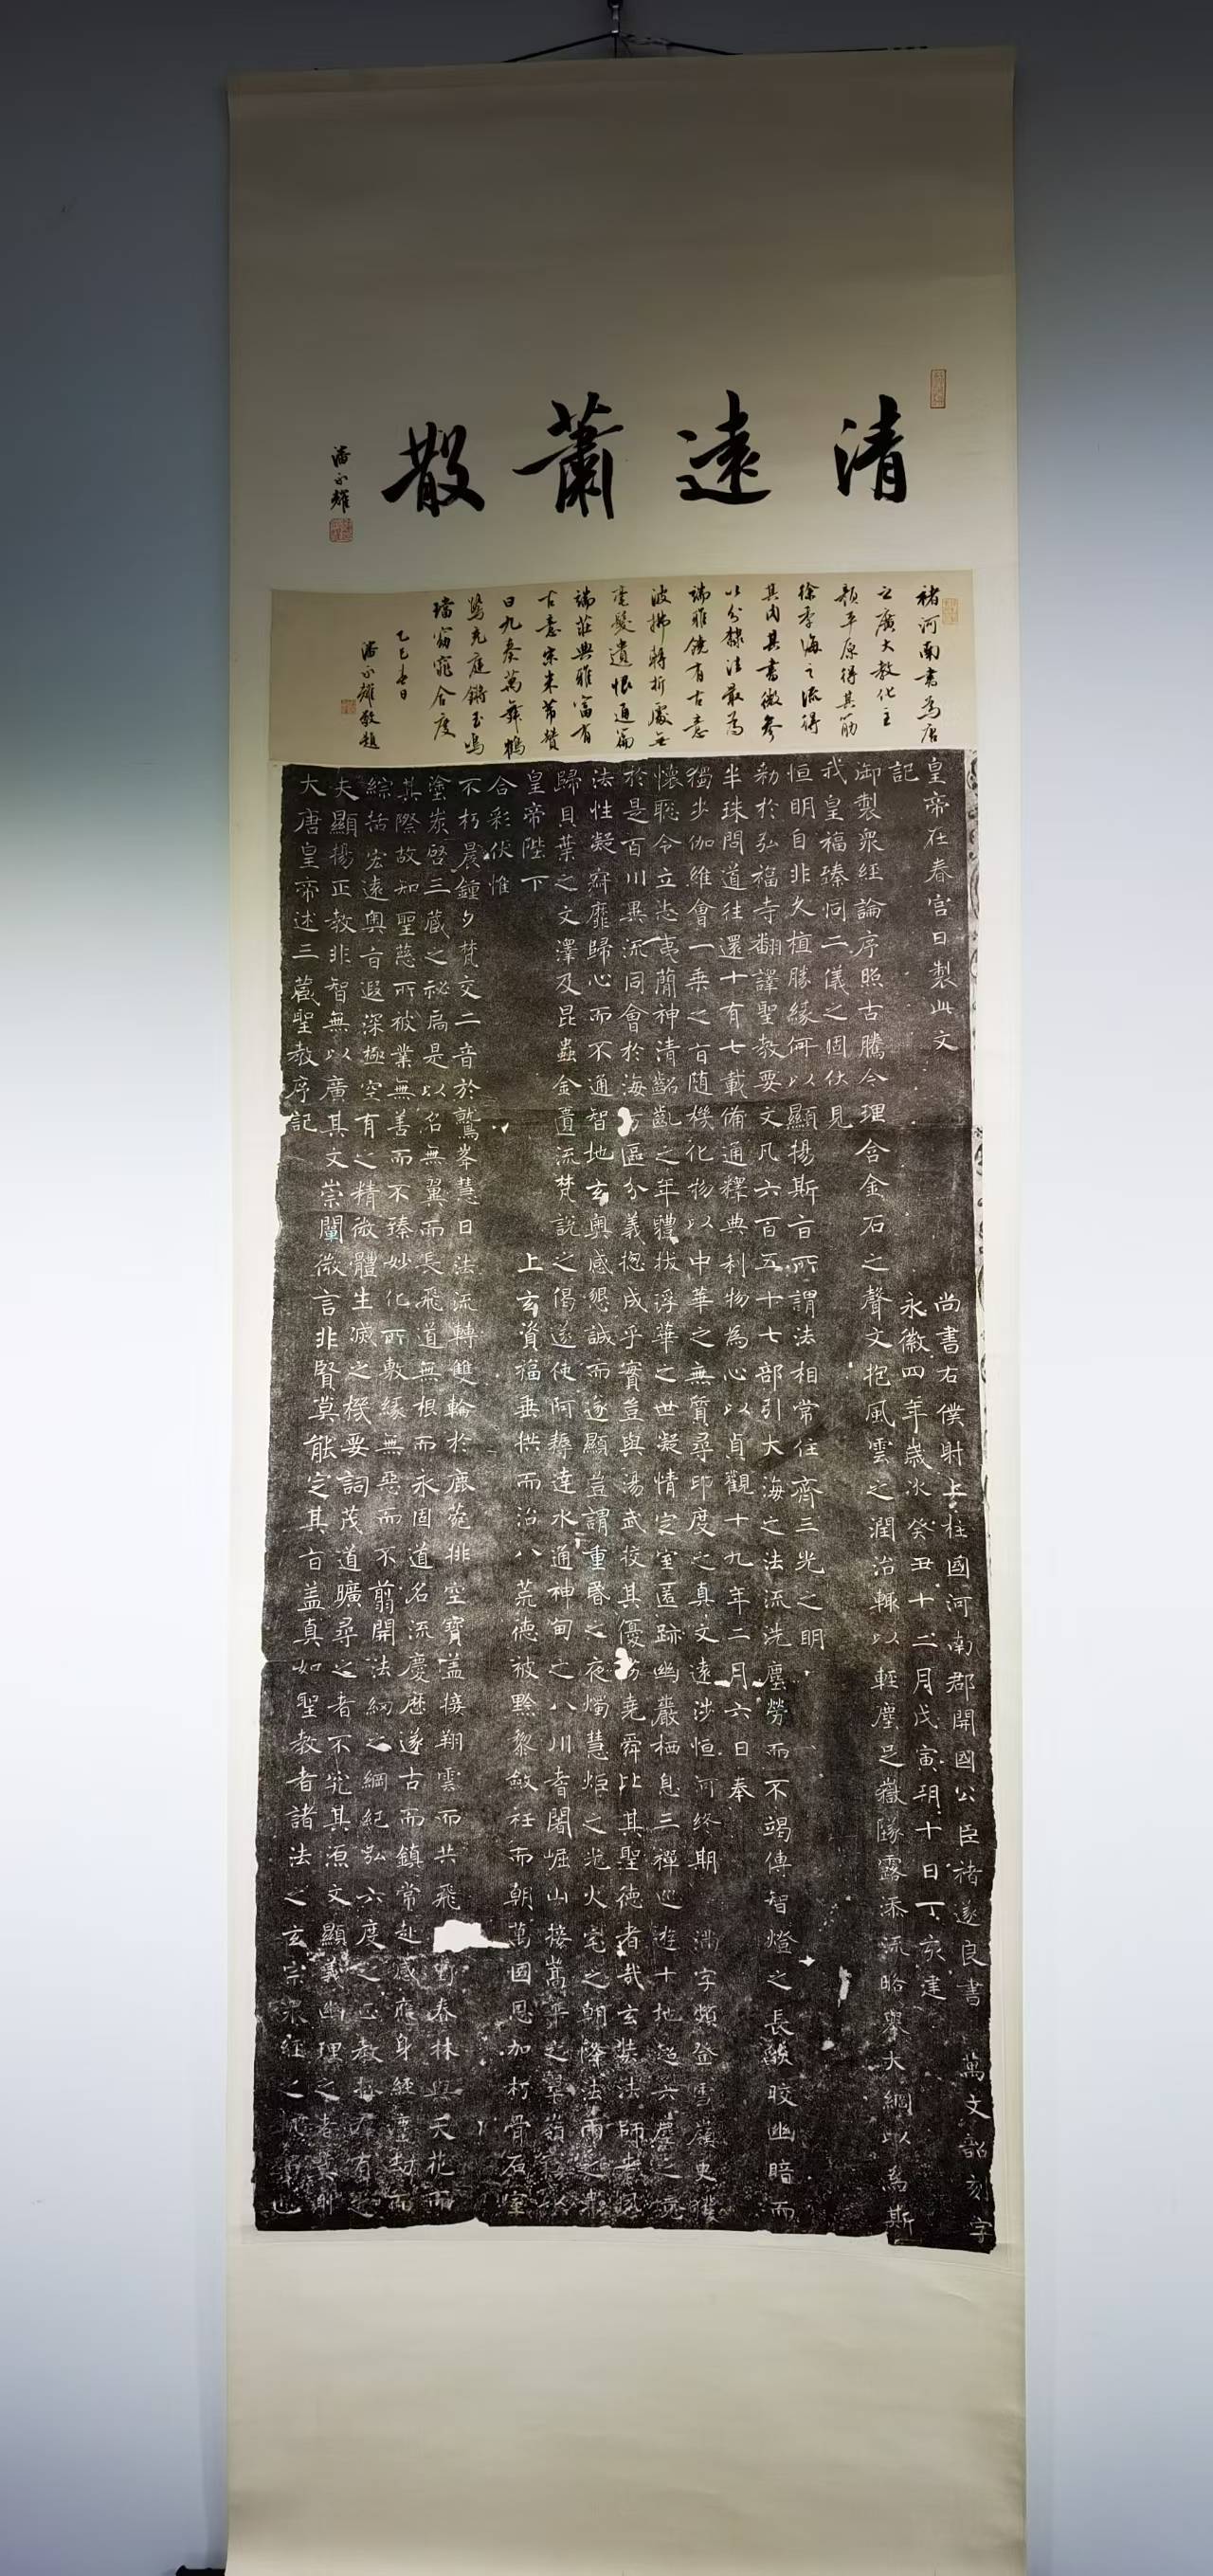 清遠蕭散
潘永耀
褚河南書為唐
之廣大教化主
顏平原得其筋
徐季海之流得
其肉其書微參
以分隸法最為
端雅饒有古意
波拂轉折處無
毫髮遺恨通篇
端莊典雅富有
古意宋米芾贊
曰九奏萬舞鶴
鷺充庭鏘玉鳴
璫窈窕合度
乙巳春日
潘永耀敬題
大唐皇帝述三藏聖教序記
夫顯揚正教非智無以廣其文崇闡微言非賢莫能定其旨盖真如聖教者諸法之玄宗眾經之軌躅也
綜括宏遠奧旨遐深極空有之精微體生滅之機要詞茂道曠尋之者不究其源文顯義幽理之者莫測
其際故知聖慈所被業無善而不臻妙化所敷緣無惡而不翦開法網之綱紀弘六度之正教拯群有之
塗炭啓三藏之祕扃是以名無翼而長飛道無根而永固道名流慶歷遂古而鎮常赴感應身經塵劫而
不朽晨鍾夕梵交二音於鷲峯慧日法流轉雙輪於鹿菀排空寶盖接翔雲而共飛野春林與天花而
合彩伏惟
皇帝陛下上玄資福垂拱而治八荒德被黔黎斂衽而朝萬國恩加朽骨石室
歸貝葉之文澤及昆蟲金匱流梵說之偈遂使阿耨達水通神甸之八川耆闍崛山接嵩華之翠嶺竊以
法性凝寂靡歸心而不通智地玄奧感懇誠而遂顯豈謂重昏之夜燭慧炬之光火宅之朝降法雨之澤
於是百川異流同會於海萬區分義揔成乎實豈與湯武校其優劣堯舜比其聖德者哉玄奘法師者夙
懷聡令立志夷簡神清齠齔之年體拔浮華之世凝情定室匿跡幽巖栖息三禪巡遊十地超六塵之境
獨步伽維會一乘之旨隨機化物以中華之無質尋印度之真文遠涉恒河終期滿字頻登雪嶺更獲
半珠問道往還十有七載備通釋典利物為心以貞觀十九年二月六日奉
勑於弘福寺翻譯聖教要文凡六百五十七部引大海之法流洗塵勞而不竭傳智燈之長燄皎幽暗而
恒明自非久植勝緣何以顯揚斯旨所謂法相常住齊三光之明
我皇福臻同二儀之固伏見
御製眾經論序照古騰今理含金石之聲文抱風雲之潤治輒以輕塵足嶽墜露添流略舉大綱以為斯
記
永徽四年歲次癸丑十二月戊寅朔十日丁亥建
皇帝在春宮日製此文
尚書右僕射上柱國河南郡開國公臣褚遂良書
萬文韶刻字